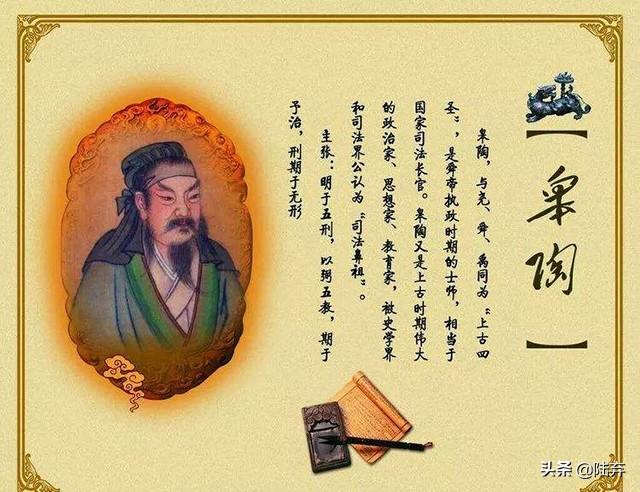 【皋陶】
皋陶，与尧、舜、禹同为“上古四
圣”，是舜帝执政时期的士师，相当于
国家司法长官。皋陶又是上古时期伟大
的政治家、思想家、教育家，被史学界
和司法界公认为“司法鼻祖”。
主张：明于五刑，以弼五教，期于
予治，刑期于无形
头条 @陆弃